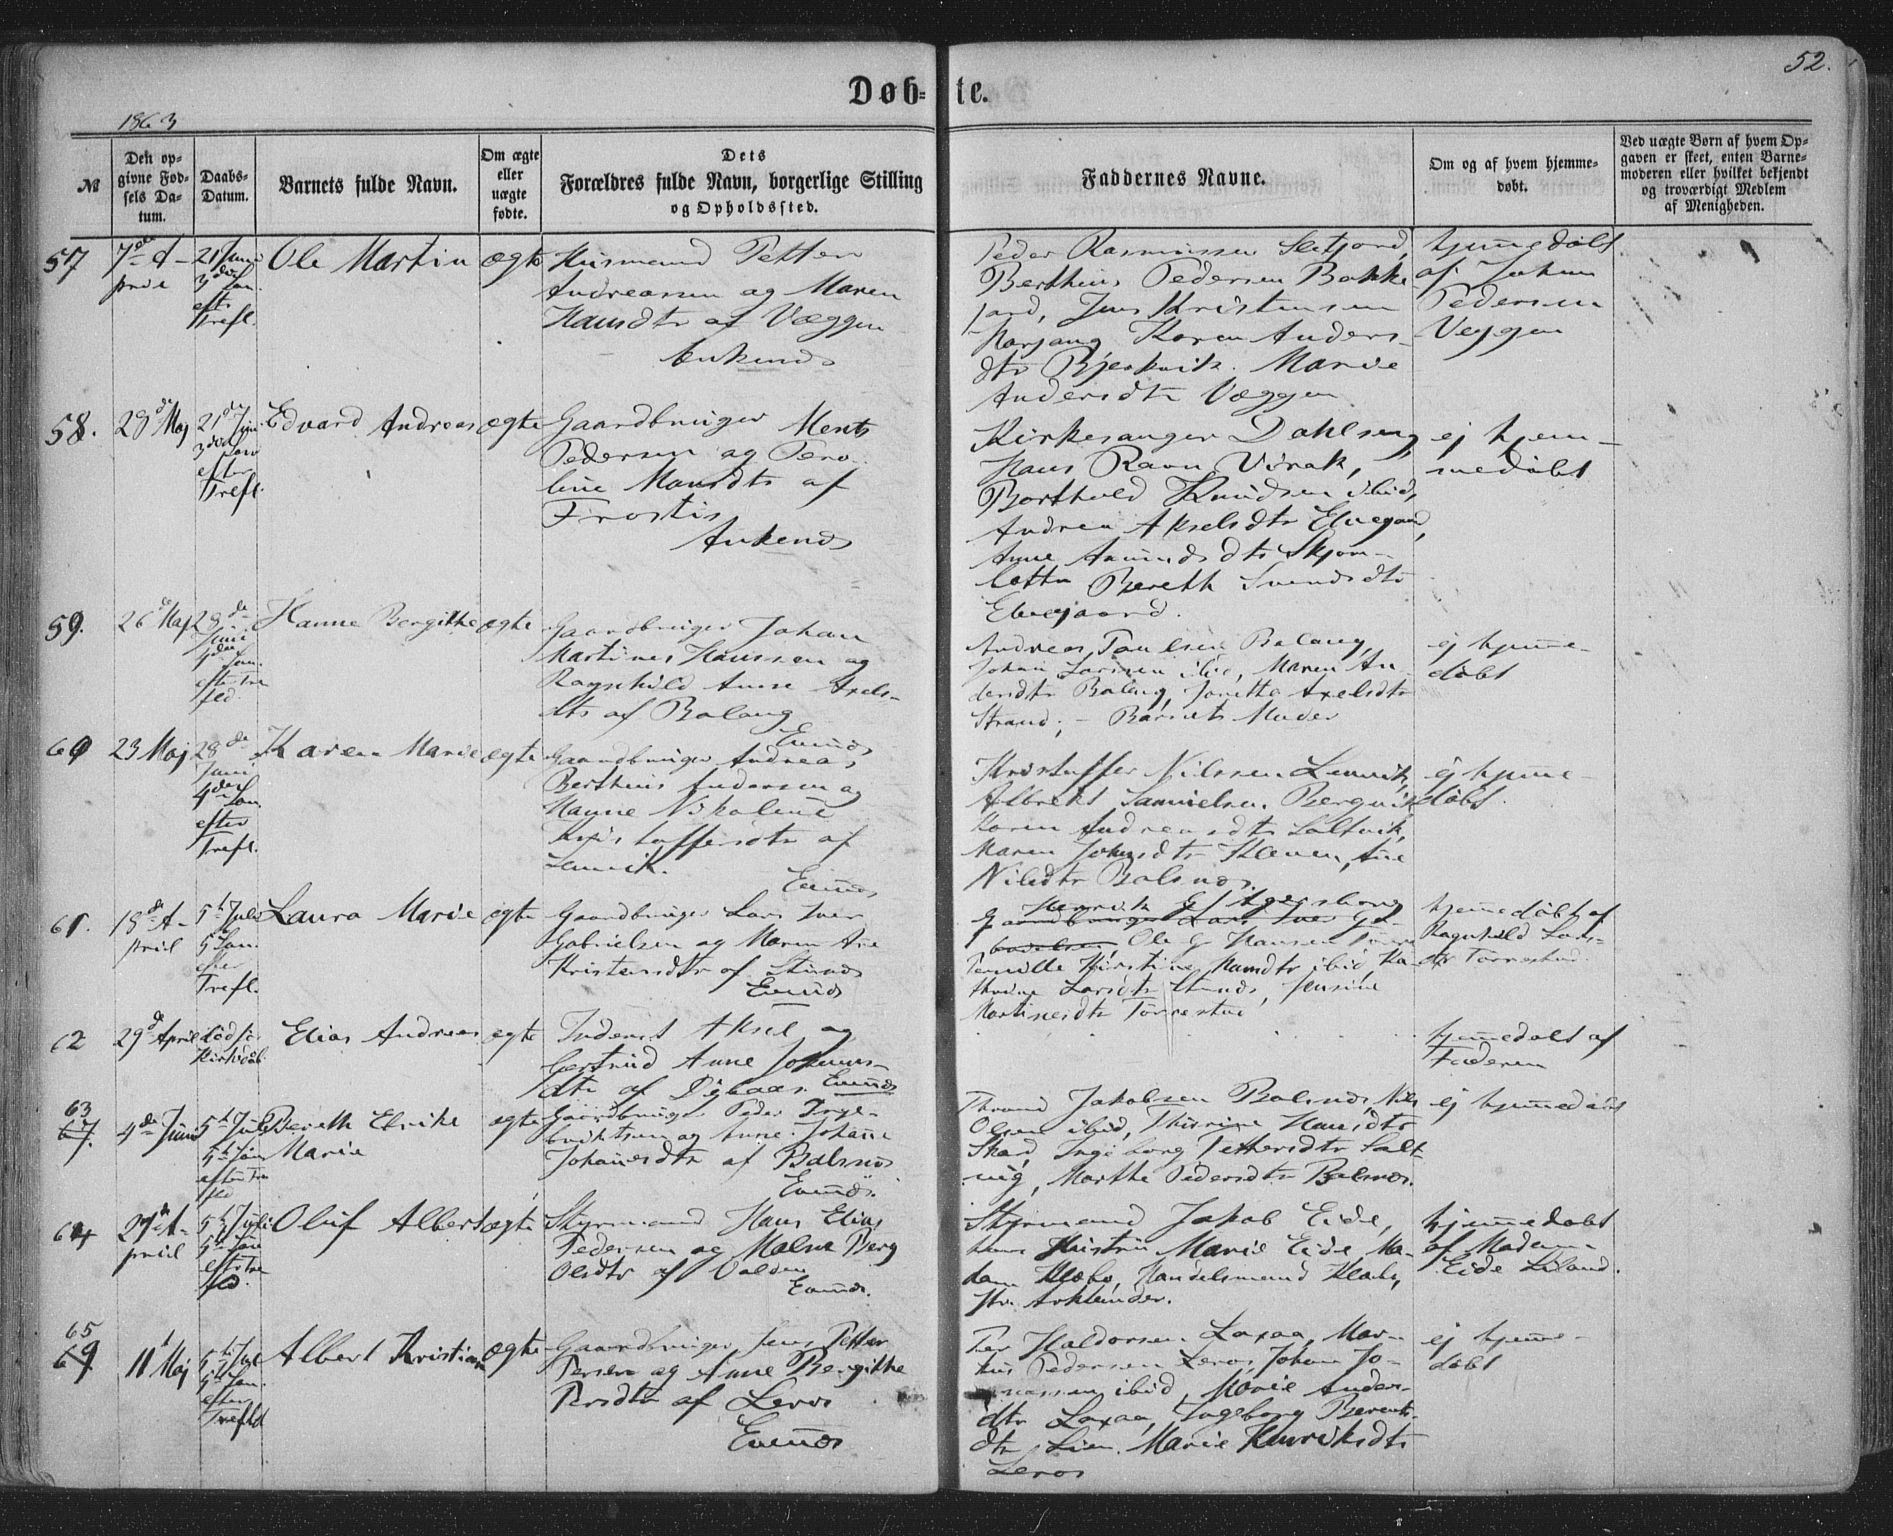 52.
Døb= te.
1863
№
Den op=
givne Fød=
sels Da=
tum.
Daabs=
Datum.
Barnets fulde Navn.
Om ægte
eller
uægte
fødte.
Dets
Forældres fulde Navn, borgerlige Stilling
og Opholdssted.
Faddernes Navne.
Om og af hvem hjemme=
døbt.
Ved uægte Børn af hvem Op=
gaven er skeet, enten Barne=
moderen eller hvilket bekjendt
og troværdigt Medlem
af Menigheden.
57
7de A-
pril
21 Juni
3die San.
eft.
Trefl.
Ole Martin
ægte
Husmand Petter
Andreassen og Maren
Hansdtr af Væggen
Ankenes
Peder Rasmussen
Berthius Pedersen Bakke
jord, Jens Kristensen
Karen Anders-
dtr Marie
Andersdtr Væggen
hjemedøbt
af Johan
Pedersen
Veggen
58.
29de Maj
21de Juni
efter
Trefl.
Edvard Andreas
ægte
Gaardbruger Ments
Pedersen og Pero-
line Monsdtr af
Frostis
Ankenes
Kirkesanger Dahlseng
Hans Ravn Virak,
Berthold Knudsen ibid,
Andrea Akselsdtr Elvegaard,
Anne Amundsdtr Skjom-
botten Bereth Svendsdtr
Elvegaard.
ej hjem-
medøbt
59.
26de Maj
28de
Juni
4de
San.
efter Tre
fld.
Hanne Bergitte
ægte
Gaardbruger Johan
Martines Hanssen og
Ragnhild Anne Axels-
dtr af Balang
Evenes
Andreas Paulsen Balang,
Johan Larssen ibid, Maren An-
dersdtr Balang, Janetta Axelsdtr
Strand, - Barnets Moder
ej hjemme-
døbt
60
23 Maj
28de
Juni
4de San.
efter
Trefl.
Karen Marie
ægte
Gaardbruger Andreas
Berthius Andersen og
Hanne Nikoline
Kristoffersdtr af
Lenvik.
Evenes
Kristoffer Nilssen Lenvik,
Albrekt Samuelsen Bergvik
Karen Andreasdtr Saltvik,
Maren Johnsdtr Kleven, Ane
Nilsdtr Balsnes.
ej hjemme-
døbt.
61.
18de A-
pril
5te Juli
5 San.
efter
Trefl.
Laura Marie
ægte
Gaardbruger Lars Iver
Gabrielsen og Maren Ane
Kristensdtr af
Evenes
Henrik
Gaardbruger Lars Iver Ga-
brielsen, Ole G Hansen
Pernille Kirstine Hansdtr ibid, Ka-
thrine Larsdtr Jensine
Martinesdtr Tørrestad
hjemedøbt af
Ragnhild Lars-
dtr Tørrestad.
62
29de April
død før
Kirkedåb
Elias Andreas
ægte
Inderst Aksel og
Gertrud Anne Johanns-
dtr af Evenes
hjemedøbt af
Faderen
63
67.
4de Juni
5te Juli
5te San
efter Tre
fld
Bereth Elrike
Marie
ægte
Gaardbruger Peder Inge-
briktsen og Anne Johanne
Johannesdtr af Balsnes
Evenes.
Thrond Jakobsen Balsnes, Nils
Olsen ibid, Hansdtr
Skard, Ingeborg Pettersdtr Salt-
vig, Marthe Pedersdtr Balsnes.
ej hjemmedøbt
64
27de A-
pril
5te Juli
5te San
efter Tre
fld.
Oluf Albert
ægte
Styrmand Hans Elias
Pedersen og Malene Berg
Olsdtr af
Evenes.
Styrmand Jakob Eide,
hans Hustru Marie Eide, Ma-
dam Klæbo, Handelsmand Klæbo,
hjemmedøbt
af Madam
Eide Liland.
65
69
11te Maj
5te Juli
5te San.
efter
Trefld
Albert Kristian
ægte
Gaardbruger Jens Petter
Persen og Anne Bergitte
Persdtr af Leros
Evenes
Per Haldorsen Laxaa, Mar-
kus Pedersen Leros, Johan Jo-
nassen ibid, Marie Anders-
dtr Laxaa, Ingeborg Berents-
dtr Lien. Marie Henriksdtr
Leros
ej hjemme-
døbt